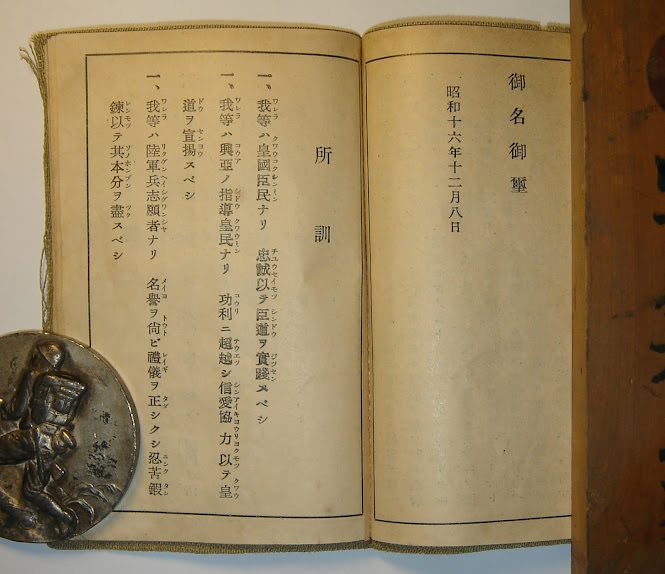 御名御璽
昭和十六年十二月八日
所訓
一、我等ハ皇國臣民ナリ 忠誠以テ臣道ヲ實踐スベシ
一、我等ハ興亞ノ指導皇民ナリ 功利ニ超越シ信愛協力以テ皇
道ヲ宣揚スベシ
一、我等ハ陸軍兵志願者ナリ 名譽ヲ尙ビ禮儀ヲ正シクシ忍苦鍛
鍊以テ其本分ヲ盡スベシ